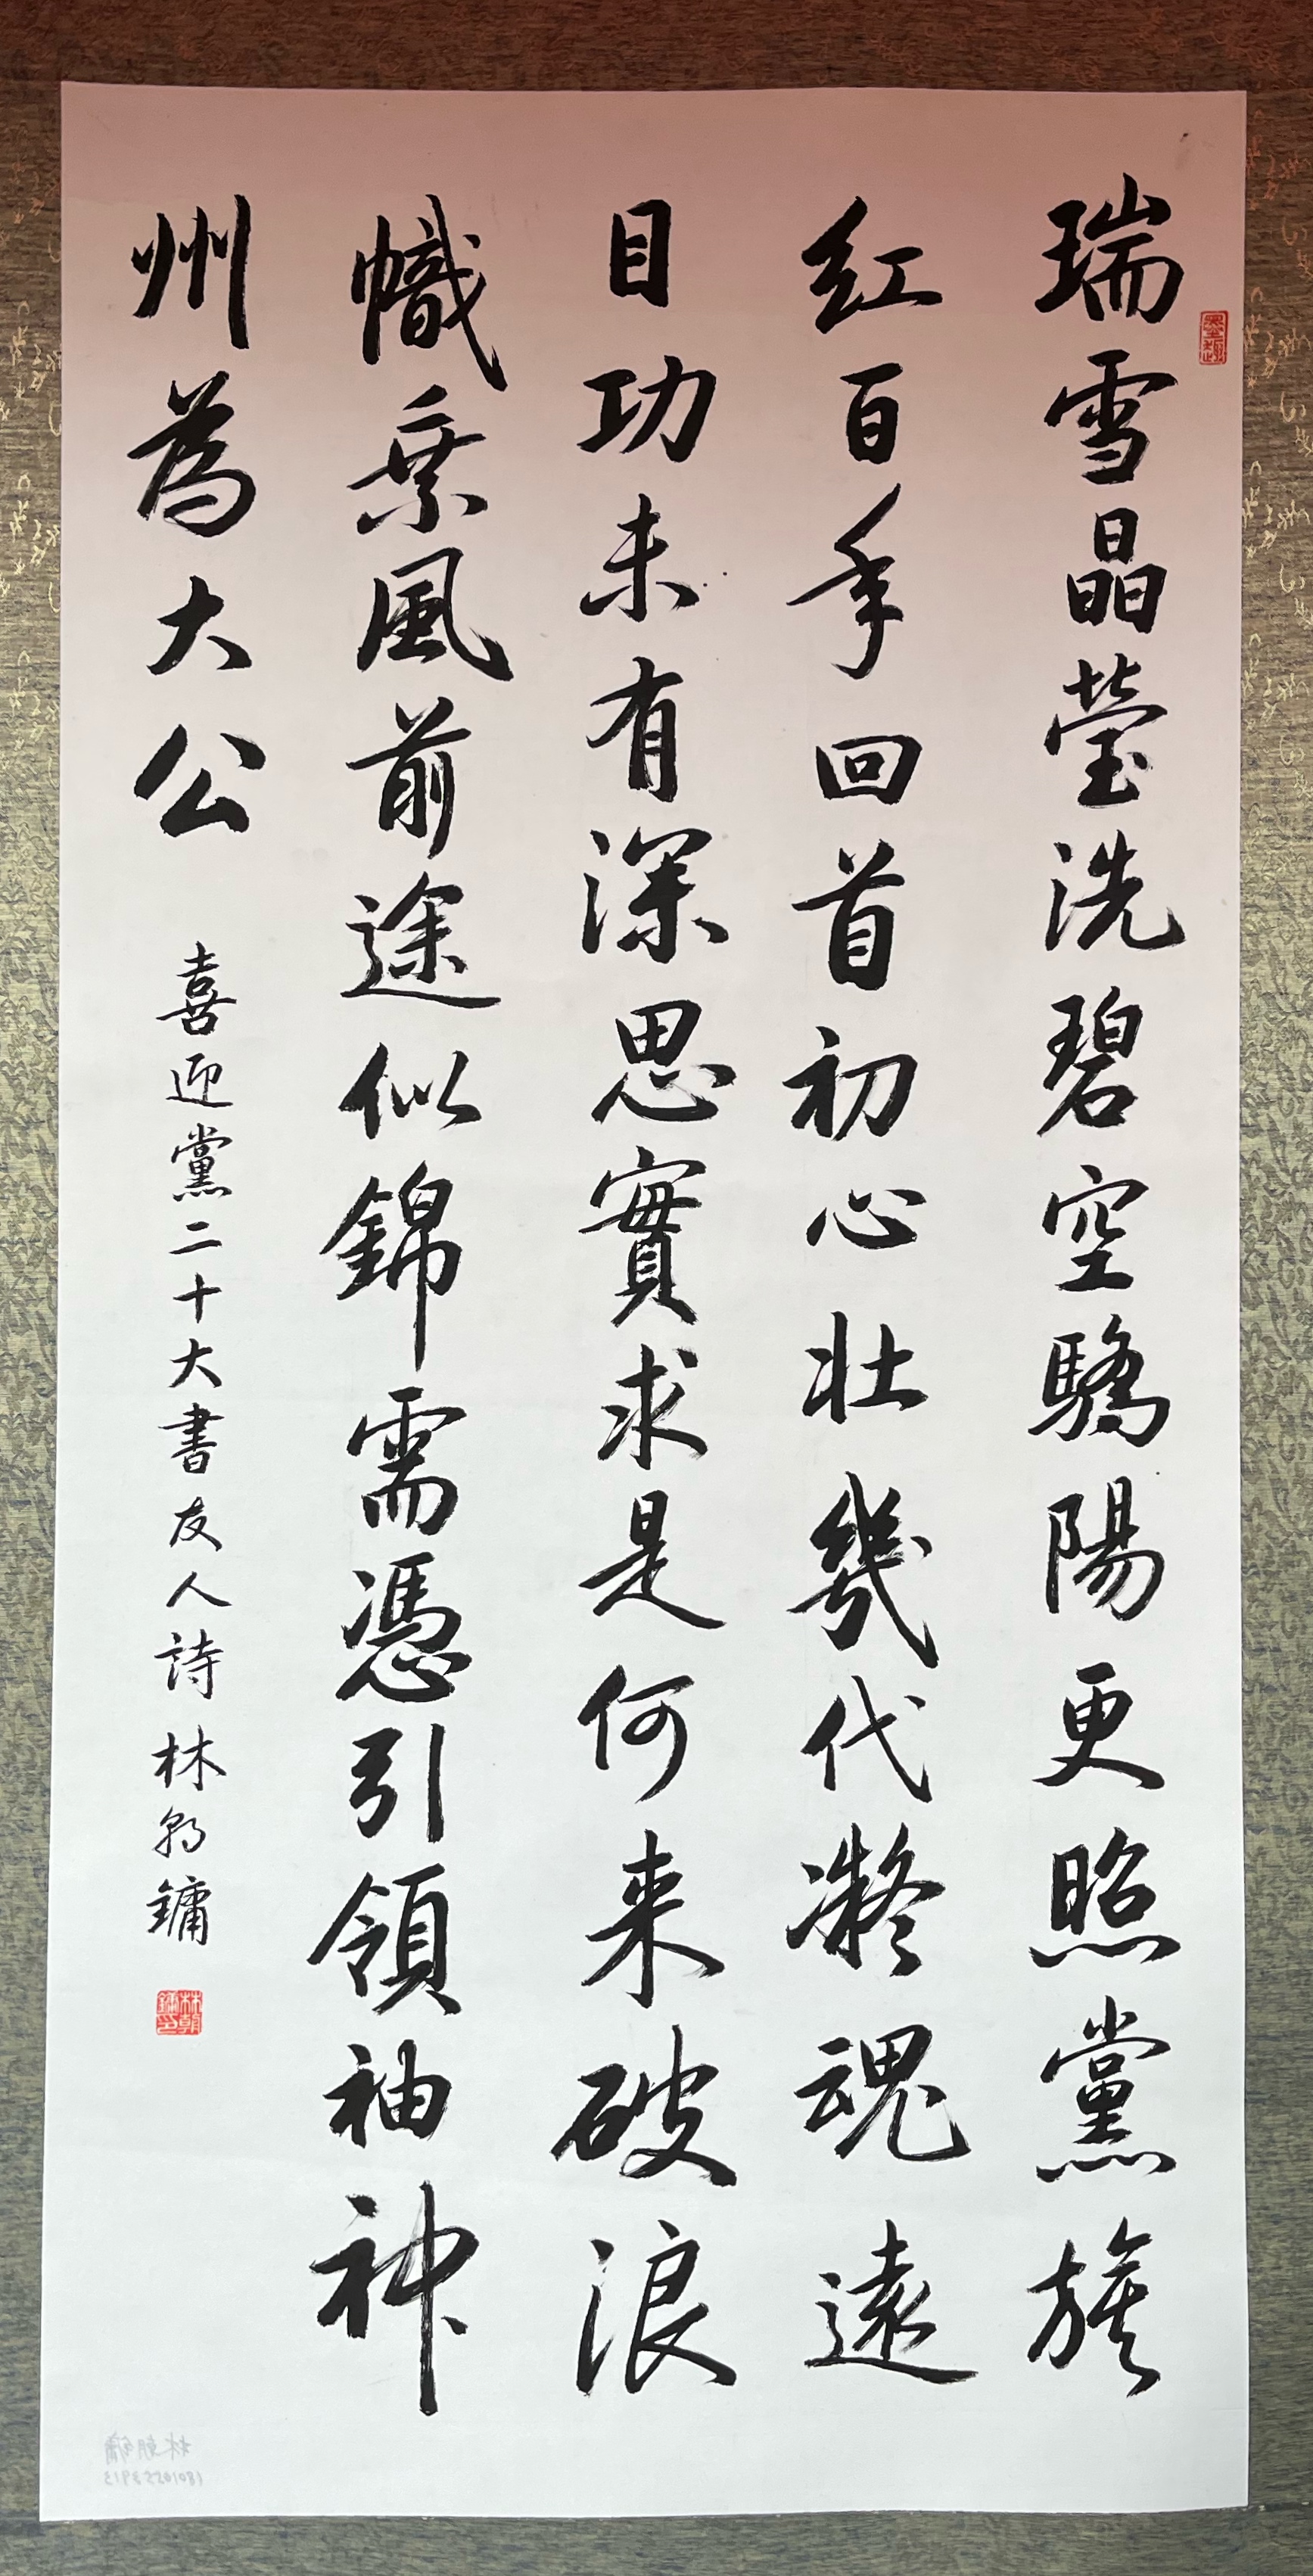 瑞雪晶瑩洗碧空驕陽更照黨旗
红百年回首初心壮幾代凝魂遠
目功未有深思實求是何来破浪
幟乘風前途似錦需憑引領袖神
州為大公
喜迎黨二十大書友人詩林朝鏞
墨趣
林朝鏞印